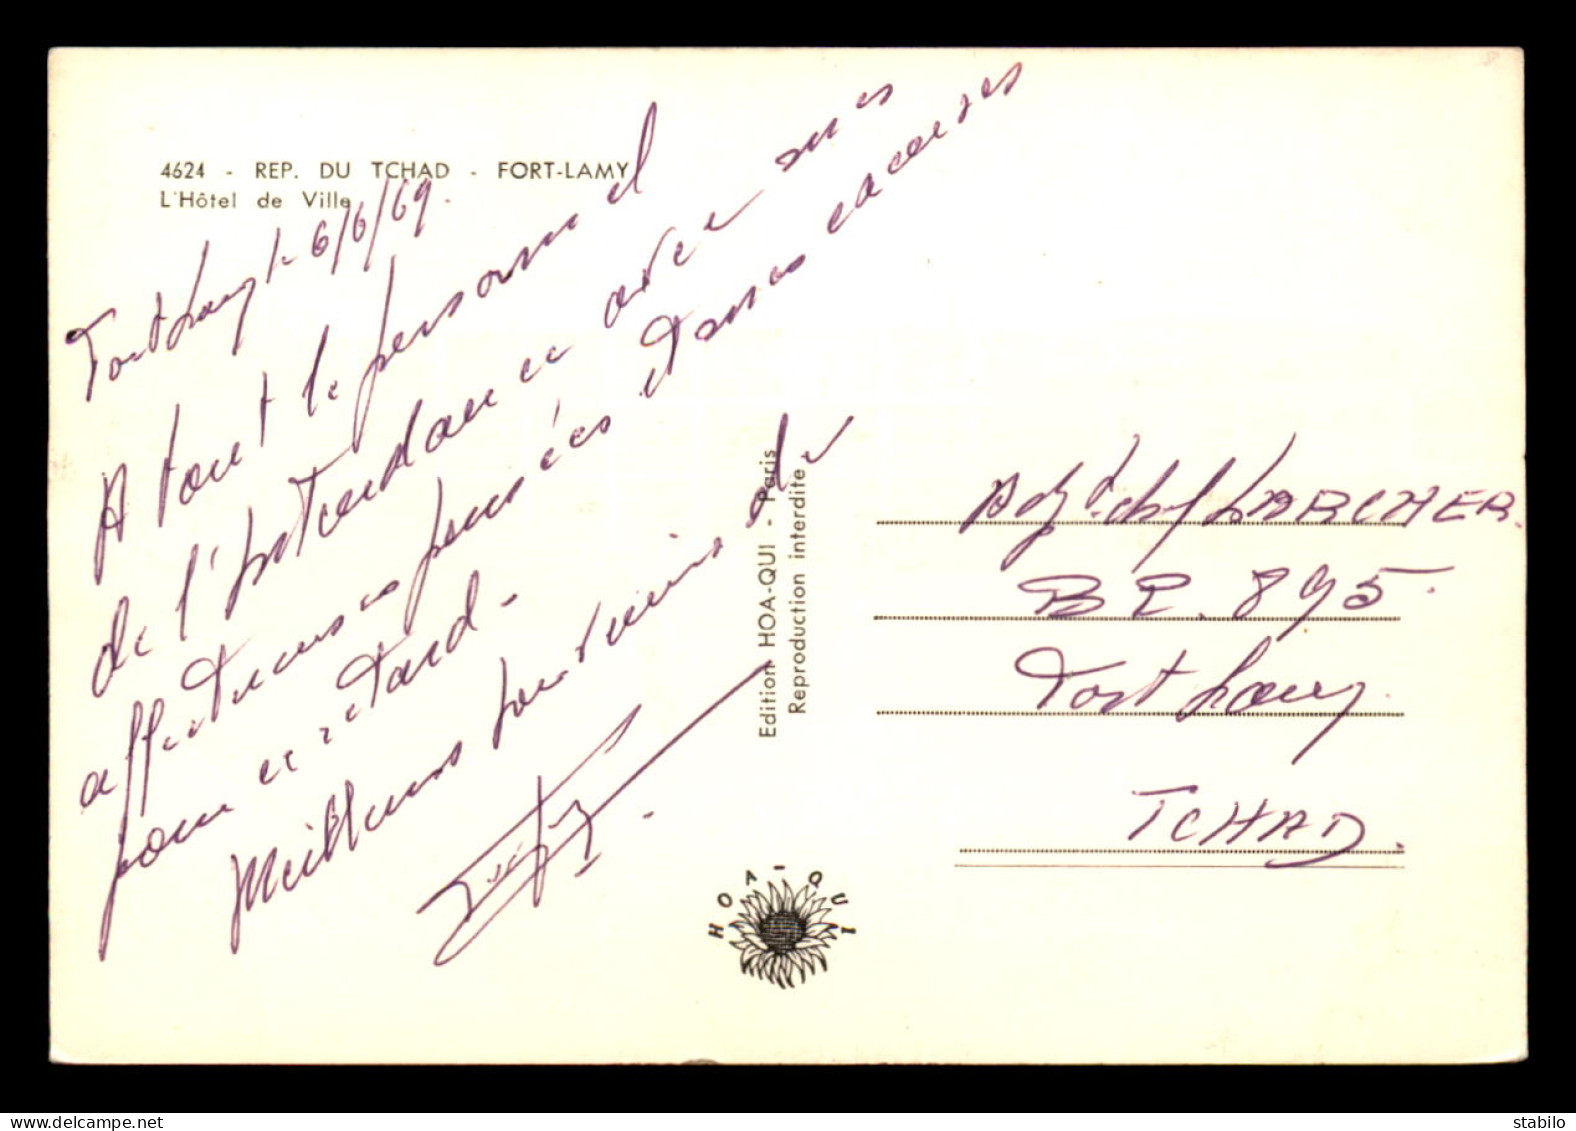 4624 - REP. DU TCHAD - FORT-LAMY
L'Hôtel de Ville
Fort Lamy le 6/6/69.
A tout le personnel
de l'intendance avec mes
affectueuses pensées et mes excuses
pour ce retard.
Meilleurs souvenirs de
Edition HOA-QUI - Paris
Reproduction interdite
HOA-QUI
Adj.t chef LARCHER
B P. 895.
Fort Lamy.
TCHAD.
stabilo